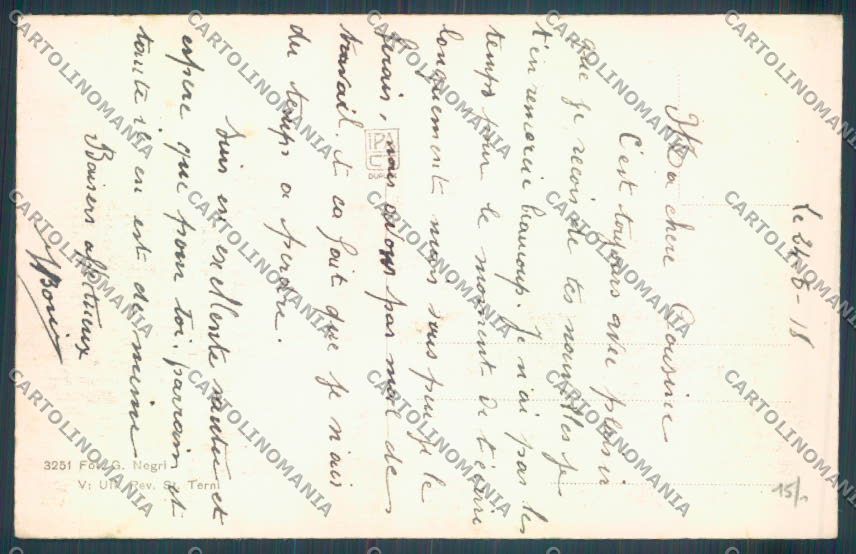 Le 24-8-18
Ma chère Cousine
C'est toujours avec plaisir
que je reçois de tes nouvelles je
t'en remercie beaucoup. Je n'ai pas les
temps pour le moment de t'écrire
longuement mais sous peu je le
ferais, nous avons pas mal de
travail et ca fait que je n'ais
du temps a perdre.
Suis en excellente santée et
espère que pour toi, parrain et
tante il en est de même
Baisers affectueux
3251 Fot. G. Negri
V: Uff. Rev. St. Terni
15/-
CARTOLINOMANIA